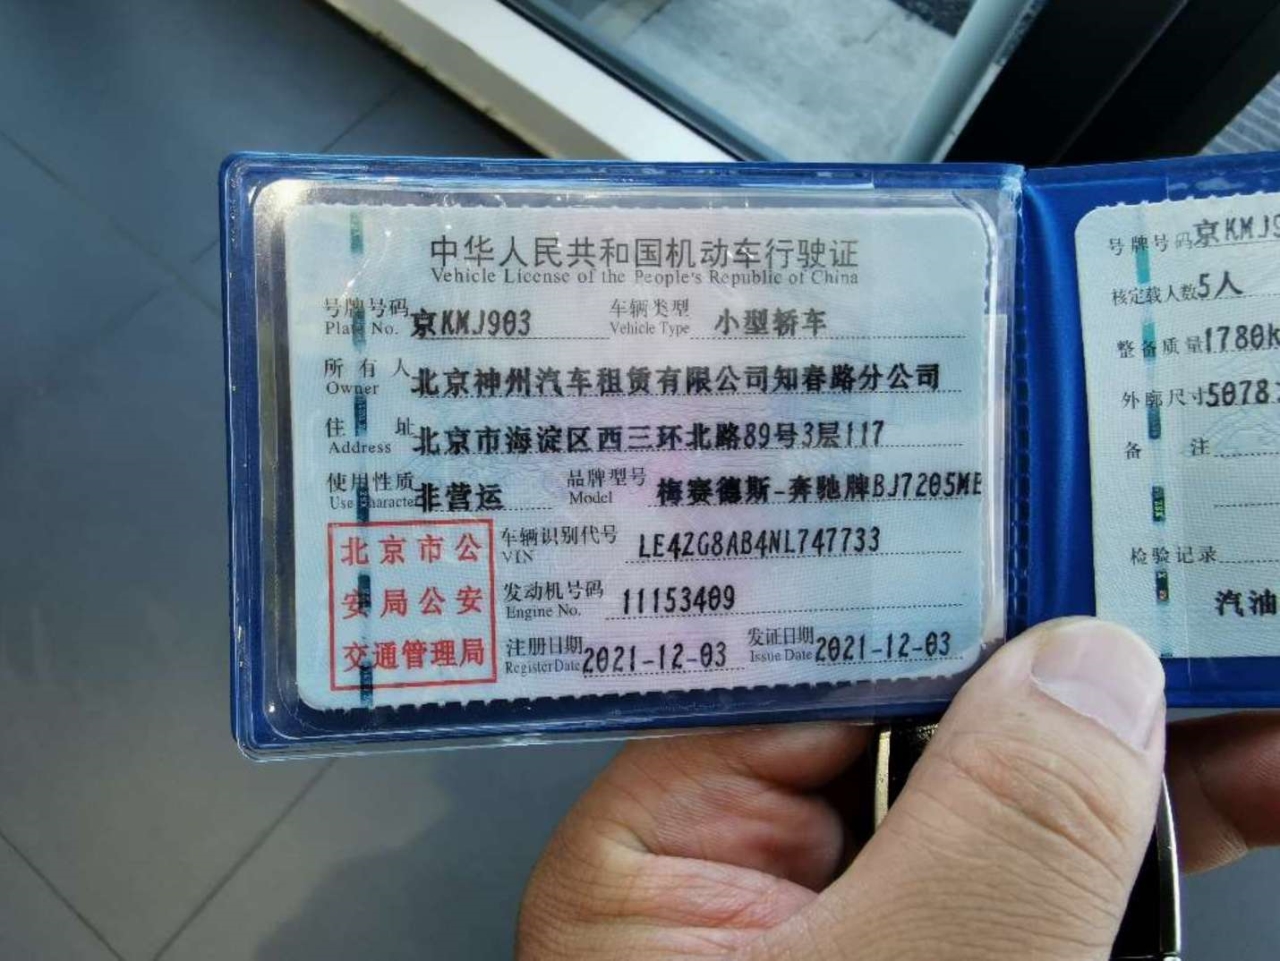 中华人民共和国机动车行驶证
Vehicle License of the People's Republic of China
号牌号码 京KMJ903 车辆类型 小型轿车
Plate No. Vehicle Type
所有人 北京神州汽车租赁有限公司知春路分公司
Owner
住址 北京市海淀区西三环北路89号3层117
Address
使用性质 非营运 品牌型号 梅赛德斯-奔驰牌BJ7205ME
Use Character Model
北京市公
安局公安
交通管理局
车辆识别代号 LE4ZG8AB4NL747733
VIN
发动机号码 11153409
Engine No.
注册日期 2021-12-03 发证日期 2021-12-03
Register Date Issue Date
号牌号码 京KMJ9
核定载人数 5人
整备质量 1780k
外廓尺寸 5078
备注
检验记录
汽油